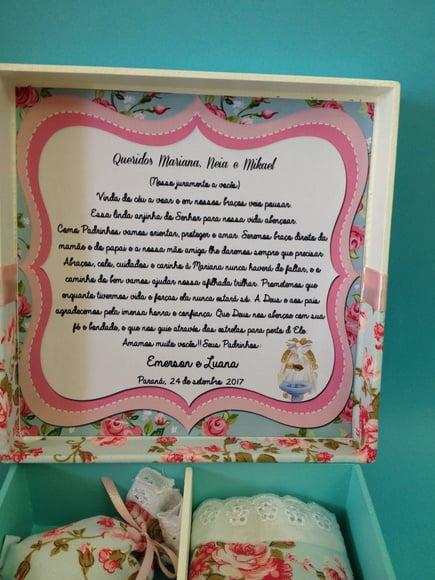 Queridos Mariana, Neia e Mikael
(Nosso juramento a você)
Vinda do céu a voar e em nossos braços veio pousar.
Essa linda anjinha do Senhor para nossa vida abençoar.
Como Padrinhos vamos orientar, proteger e amar. Seremos braço direito da
mamãe e do papai e a nossa mão amiga lhe daremos sempre que precisar.
Abraços, colo, cuidados e carinho à Mariana nunca haverá de faltar, e o
caminho do bem vamos ajudar nossa afilhada trilhar. Prometemos que
enquanto tivermos vida e forças ela nunca estará só. A Deus e aos pais
agradecemos pela imensa honra e confiança. Que Deus nos abençoe com sua
fé e bondade, e que nos guie através das estrelas para perto d Ele.
Amamos muito você!! Seus Padrinhos:
Emerson e Luana
Paraná, 24 de setembro 2017